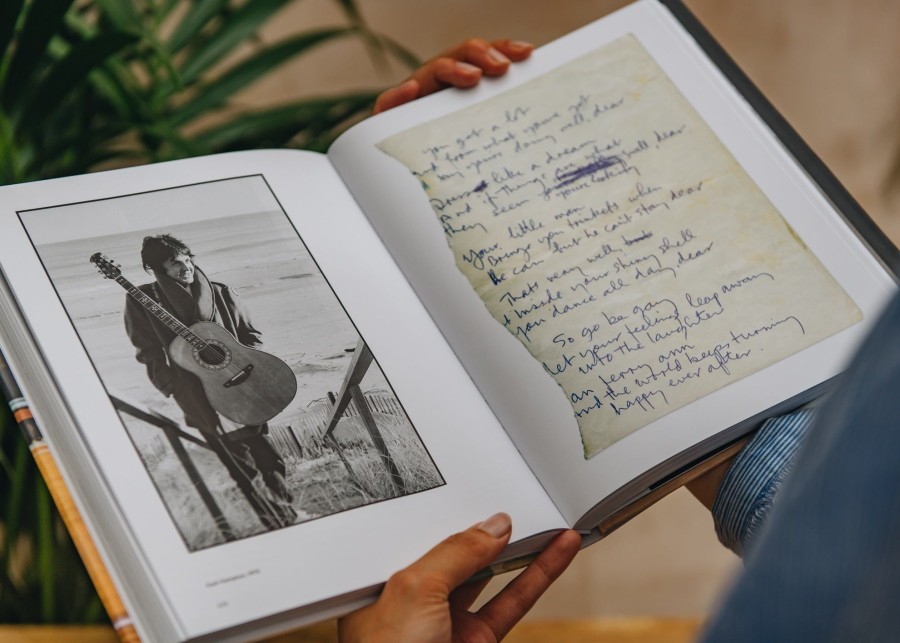 East Hampton, 1975
you got a lot
and from what youve got
Say youre doing well, dear
like a dream
And if things
seem
they youre
swell, dear
your little man
Brings you trinkets when
he can but he can't stay dear
Thats very well, but
inside your shiny shell
you dance all day dear
So go be gay
let your feelings leap away
into the laughter
an Jenny ann
And the world keeps turning
happy ever after.